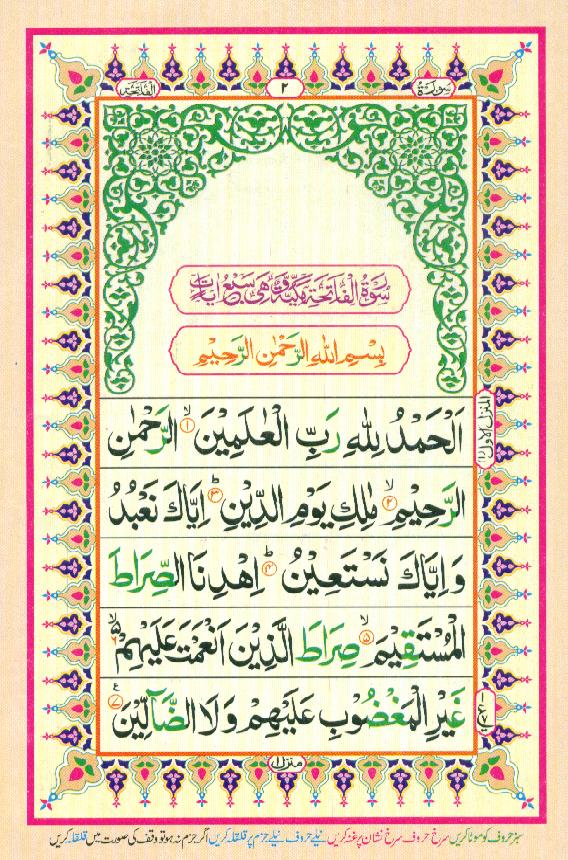 سورة ٢ الفاتحة
سورة الفاتحة مكية وهي سبع ايات
بِسْمِ اللهِ الرَّحْمٰنِ الرَّحِيْمِ
اَلْحَمْدُ لِلّٰهِ رَبِّ الْعٰلَمِيْنَ ۙ‏﴿۱﴾ الرَّحْمٰنِ
الرَّحِيْمِ ۙ‏﴿۲﴾ مٰلِكِ يَوْمِ الدِّيْنِ ؕ‏﴿۳﴾ اِيَّاكَ نَعْبُدُ
وَ اِيَّاكَ نَسْتَعِيْنُ ؕ‏﴿۴﴾ اِهْدِنَا الصِّرَاطَ
الْمُسْتَقِيْمَ ۙ‏﴿۵﴾ صِرَاطَ الَّذِيْنَ اَنْعَمْتَ عَلَيْهِمْ ۙ۬ ۶
غَيْرِ الْمَغْضُوْبِ عَلَيْهِمْ وَ لَا الضَّآلِّيْنَ ‏﴿۷﴾ ع
المنزل الاول
منزل ا
سبز حروف کو موٹا کریں سرخ حروف سرخ نشان پر غنہ کریں نیلے حروف نیلے جزم پر قلقلہ کریں اگر جزم نہ ہو تو وقف کی صورت میں قلقلہ کریں